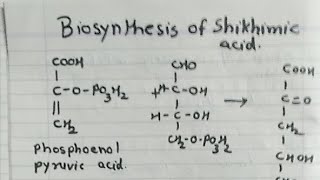 Biosynthesis of Shikhimic
acid.
COOH
C-O-PO3H2
||
CH2
phosphoenol
pyruvic acid.
+
CHO
H-C-OH
H-C-OH
CH2-O-PO3H2
→
COOH
C=O
CH2
CHOH